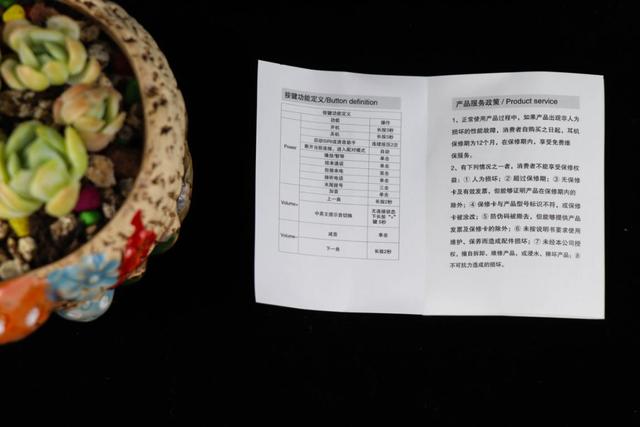 按键功能定义/Button definition
按键功能定义
功能 操作
Power
开机 长按3秒
关机 长按5秒
启动Siri或语音助手 连续按压2次
断开当前连接，进入配对模式 自动
播放/暂停 单击
结束通话 单击
拒接来电 双击
接听电话 单击
末尾拨号 三击
Volume+
加音 单击
上一曲 长按2秒
中英文提示音切换 无连接状态下长按“+”键 5秒
Volume-
减音 单击
下一曲 长按2秒
产品服务政策 / Product service
1、正常使用产品过程中，如果产品出现非人为
损坏的性能故障，消费者自购买之日起，耳机
保修期为12个月，在保修期内，享受免费维
保服务。
2、有下列情况之一者，消费者不能享受保修权
益：①人为损坏；②超过保修期；③无保修
卡及有效发票，但能够证明产品在保修期内的
除外；④保修卡与产品型号标识不符，或保修
卡被涂改；⑤防伪码被撕去，但能够提供产品
发票及保修卡的除外；⑥未按说明书要求使用
维护、保养而造成配件损坏；⑦未经本公司授
权，擅自拆卸、维修产品，或浸水、摔坏产品；⑧
不可抗力造成的损坏。